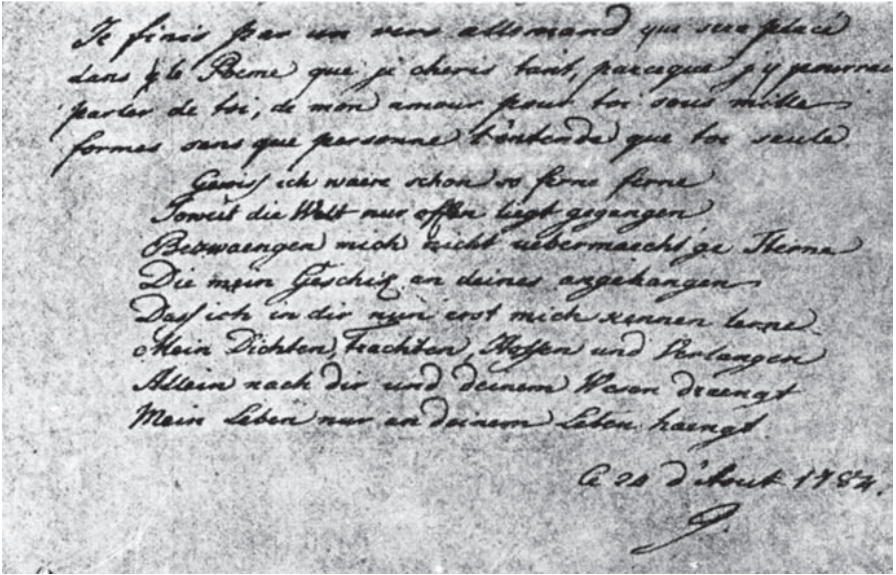 Je finis par un vers allemand qui sera placé
dans le Poeme que je cheris tant, parceque j'y pourrai
parler de toi, de mon amour pour toi sous mille
formes sans que personne l'entende que toi seule
Gewiss ich waere schon so ferne ferne
Soweit die Welt nur offen liegt gegangen
Bezwaengen mich nicht uebermaecht'ge Sterne
Die mein Geschick an deines angehangen
Dass ich in dir nun erst mich kennen lerne
Mein Dichten, Trachten, Hoffen und Verlangen
Allein nach dir und deinem Wesen draengt
Mein Leben nur an deinem Leben haengt
le 24 d'Aout 1784.
G.